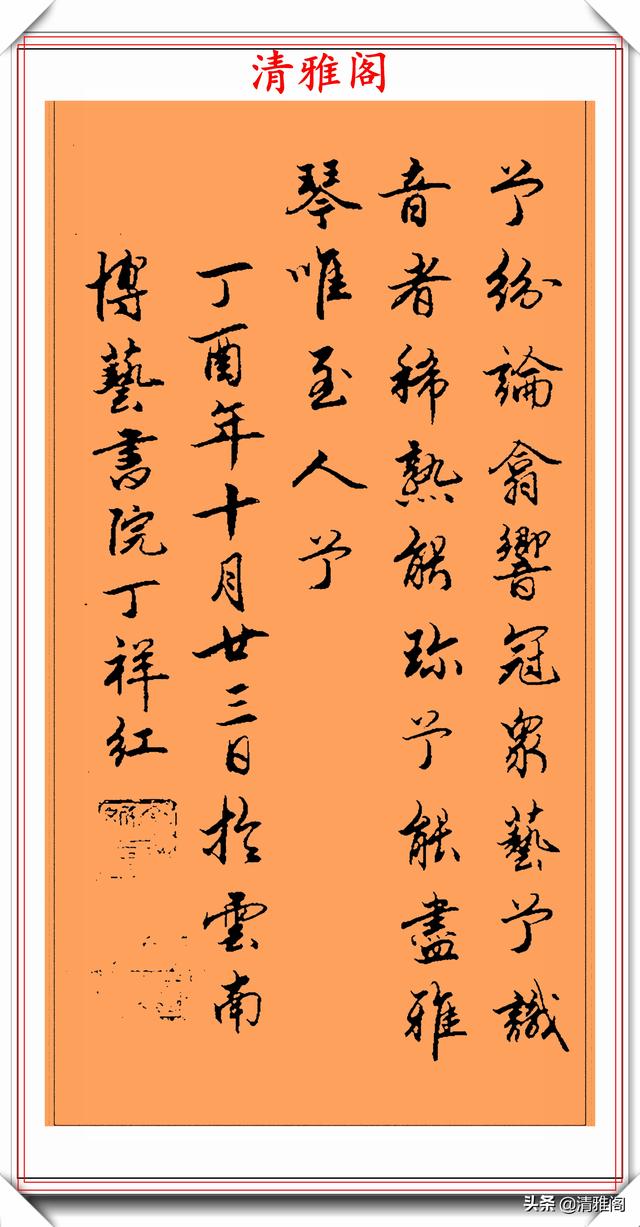 清雅阁
兮紛論翕響冠衆藝兮識
音者稀熟能珍兮能盡雅
琴唯至人兮
丁酉年十月廿三日於雲南
博藝書院丁祥紅
头条 @清雅阁